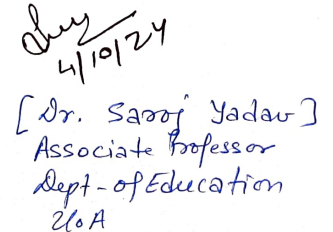 4/10/24
[Dr. Saroj Yadav]
Associate Professor
Dept-of Education
UoA